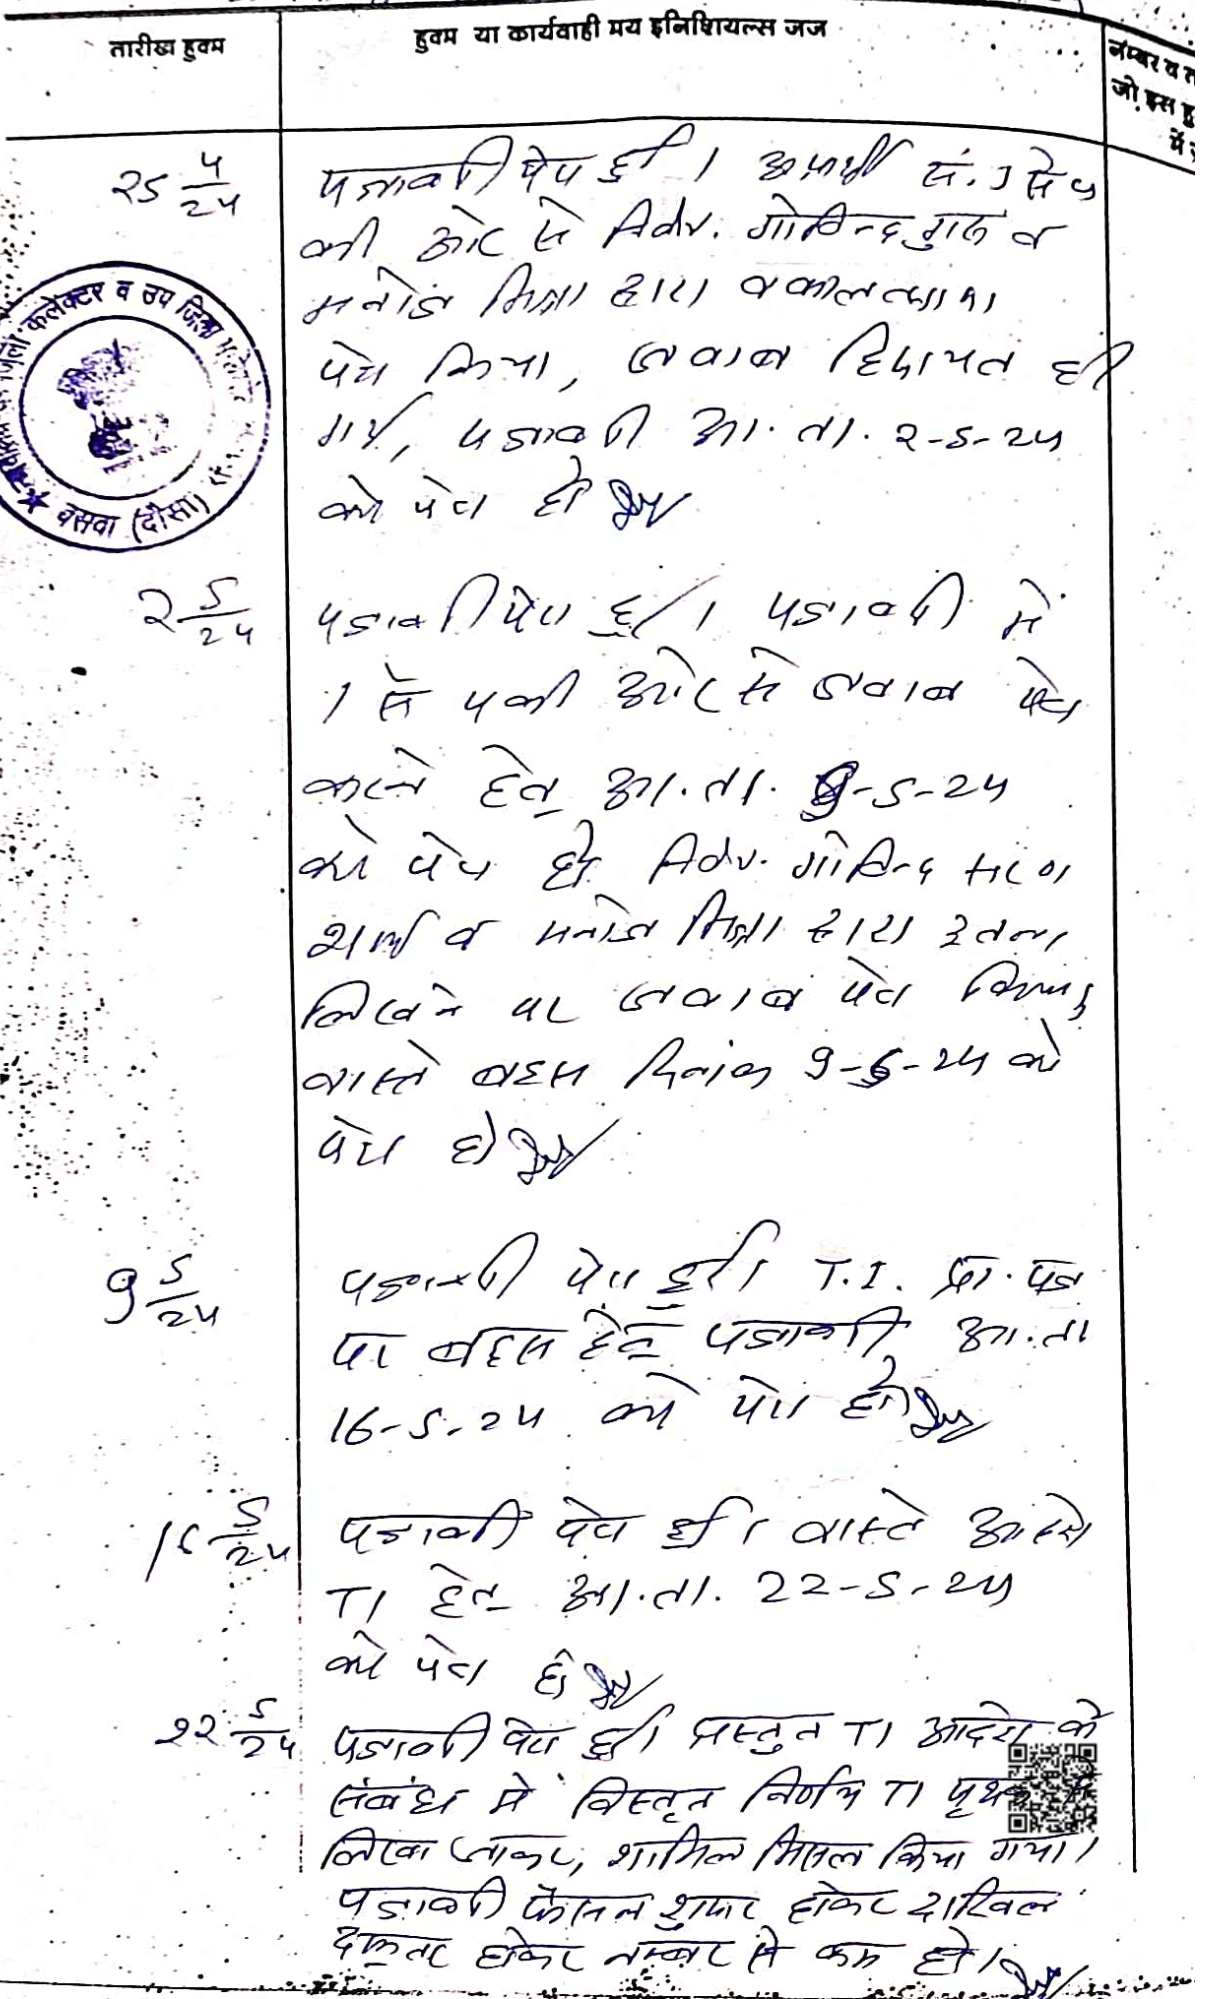 तारीख हुक्म
हुक्म या कार्यवाही मय इनिशियल्स जज
नम्बर व त
जो इस हु
में
25 4/24
पत्रावली पेश हुई। अप्रार्थी सं. 1 से 4
की ओर से गोविन्द व
मनोज मिश्रा द्वारा वकालतनामा
पेश किया, जवाब हिदायत दी
गई, पत्रावली आ.ता. 2-5-24
को पेश हो
कलेक्टर व उप जिला
बसवा (दौसा)
2 5/24
पत्रावली पेश हुई। पत्रावली में
1 से 4 की ओर से जवाब पेश
करने हेतु आ.ता. 9-5-24
को पेश हो गोविन्द शरण
शर्मा व मनोज मिश्रा द्वारा इतना
लिखने पर जवाब पेश किया
वास्ते बहस दिनांक 9-5-24 को
पेश हो
9 5/24
पत्रावली पेश हुई। T.I. प्रा. पत्र
पर बहस हेतु पत्रावली आ.ता
16-5-24 को पेश हो
16 5/24
पत्रावली पेश हुई। वास्ते आदेश
TI हेतु आ.ता. 22-5-24
को पेश हो
22 5/24
पत्रावली पेश हुई। प्रस्तुत TI आदेश के
संबंध में विस्तृत निर्णय TI पृथक से
लिखा जाकर, शामिल मिसल किया गया।
पत्रावली फैसल शुमार होकर दाखिल
दफ्तर होकर नम्बर से कम हो।